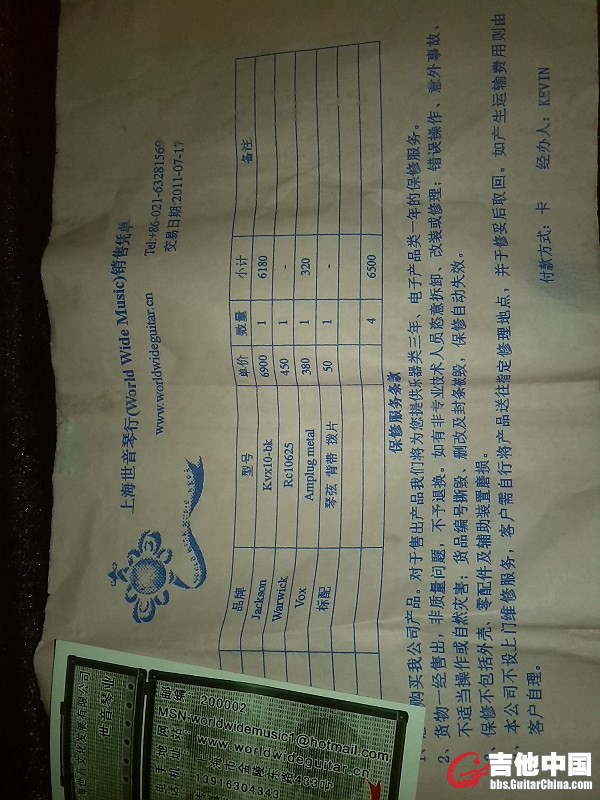 上海世音琴行(World Wide Music)销售凭单
www.worldwideguitar.cn
Tel:+86-021-63281569
交易日期:2011-07-17
品牌 型号 单价 数量 小计 备注
Jackson Kvx10-bk 6900 1 6180
Warwick Rc10625 450 1 -
Vox Amplug metal 380 1 320
标配 琴弦 背带 拨片 50 1 -
4 6500
保修服务条款
购买我公司产品。对于售出产品我们将为您提供乐器类三年、电子产品类一年的保修服务。
2、货物一经售出，非质量问题，不予退换。如有非专业技术人员恣意拆卸、改装或修理；错误操作、意外事故、
不适当操作或自然灾害；货品编号撕毁、删改及封条被毁，保修自动失效。
保修不包括外壳、零配件及辅助装置磨损。
、本公司不设上门维修服务，客户需自行将产品送往指定修理地点，并于修妥后取回。如产生运输费用则由
客户自理。
付款方式：卡 经办人：KEVIN
世音琴业
文化发展有限公司
邮编 200002
MSN:worldwidemusic1@hotmail.com
网站 www.worldwideguitar.cn
地址 上海市金陵东路433号
手机 13916304343
电话
吉他中国
bbs.GuitarChina.com